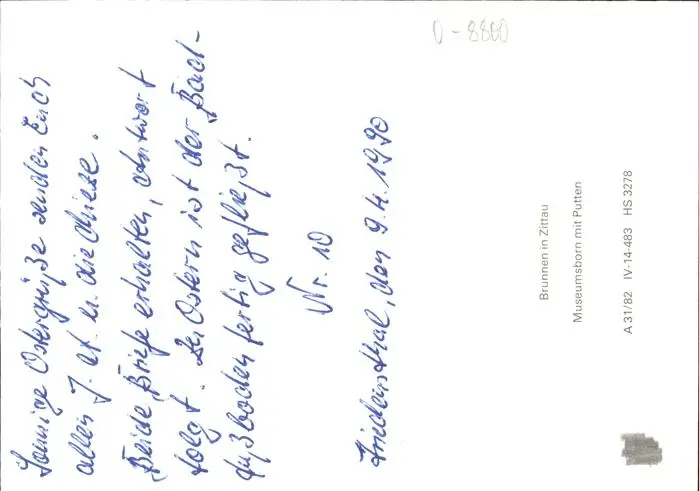 Sonnige Ostergrüße senden Euch
allen J. u. die
Beide Briefe erhalten, Antwort
folgt. Zu Ostern ist der Bad-
fußboden fertig gefließt.
Nr. 10
Friedensthal, den 9.4.1990
D-8800
Brunnen in Zittau
Museumsborn mit Putten
A 31/82 IV-14-483 HS 3278